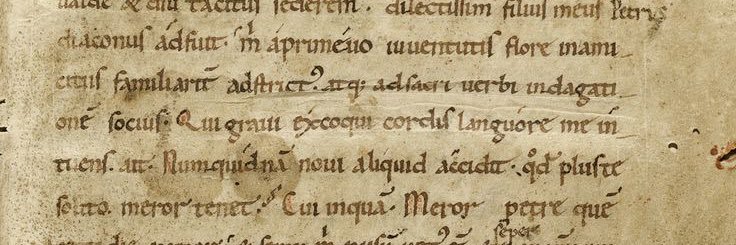 ualde & diu tacitus sederem. dilectissim filius meus Petrus
diaconus adfuit. m̄ a primeuo iuuentutis flore in ami
citiis familiarit̄ adstrict᾿. atq; ad sacri uerbi indagati
onē socius. Qui graui excoqui cordis languore me in
tuens. ait. Numquidnā noui aliquid accidit. qđ plus te
solito meror tenet. Cui inquā. Meror petre quē
semper